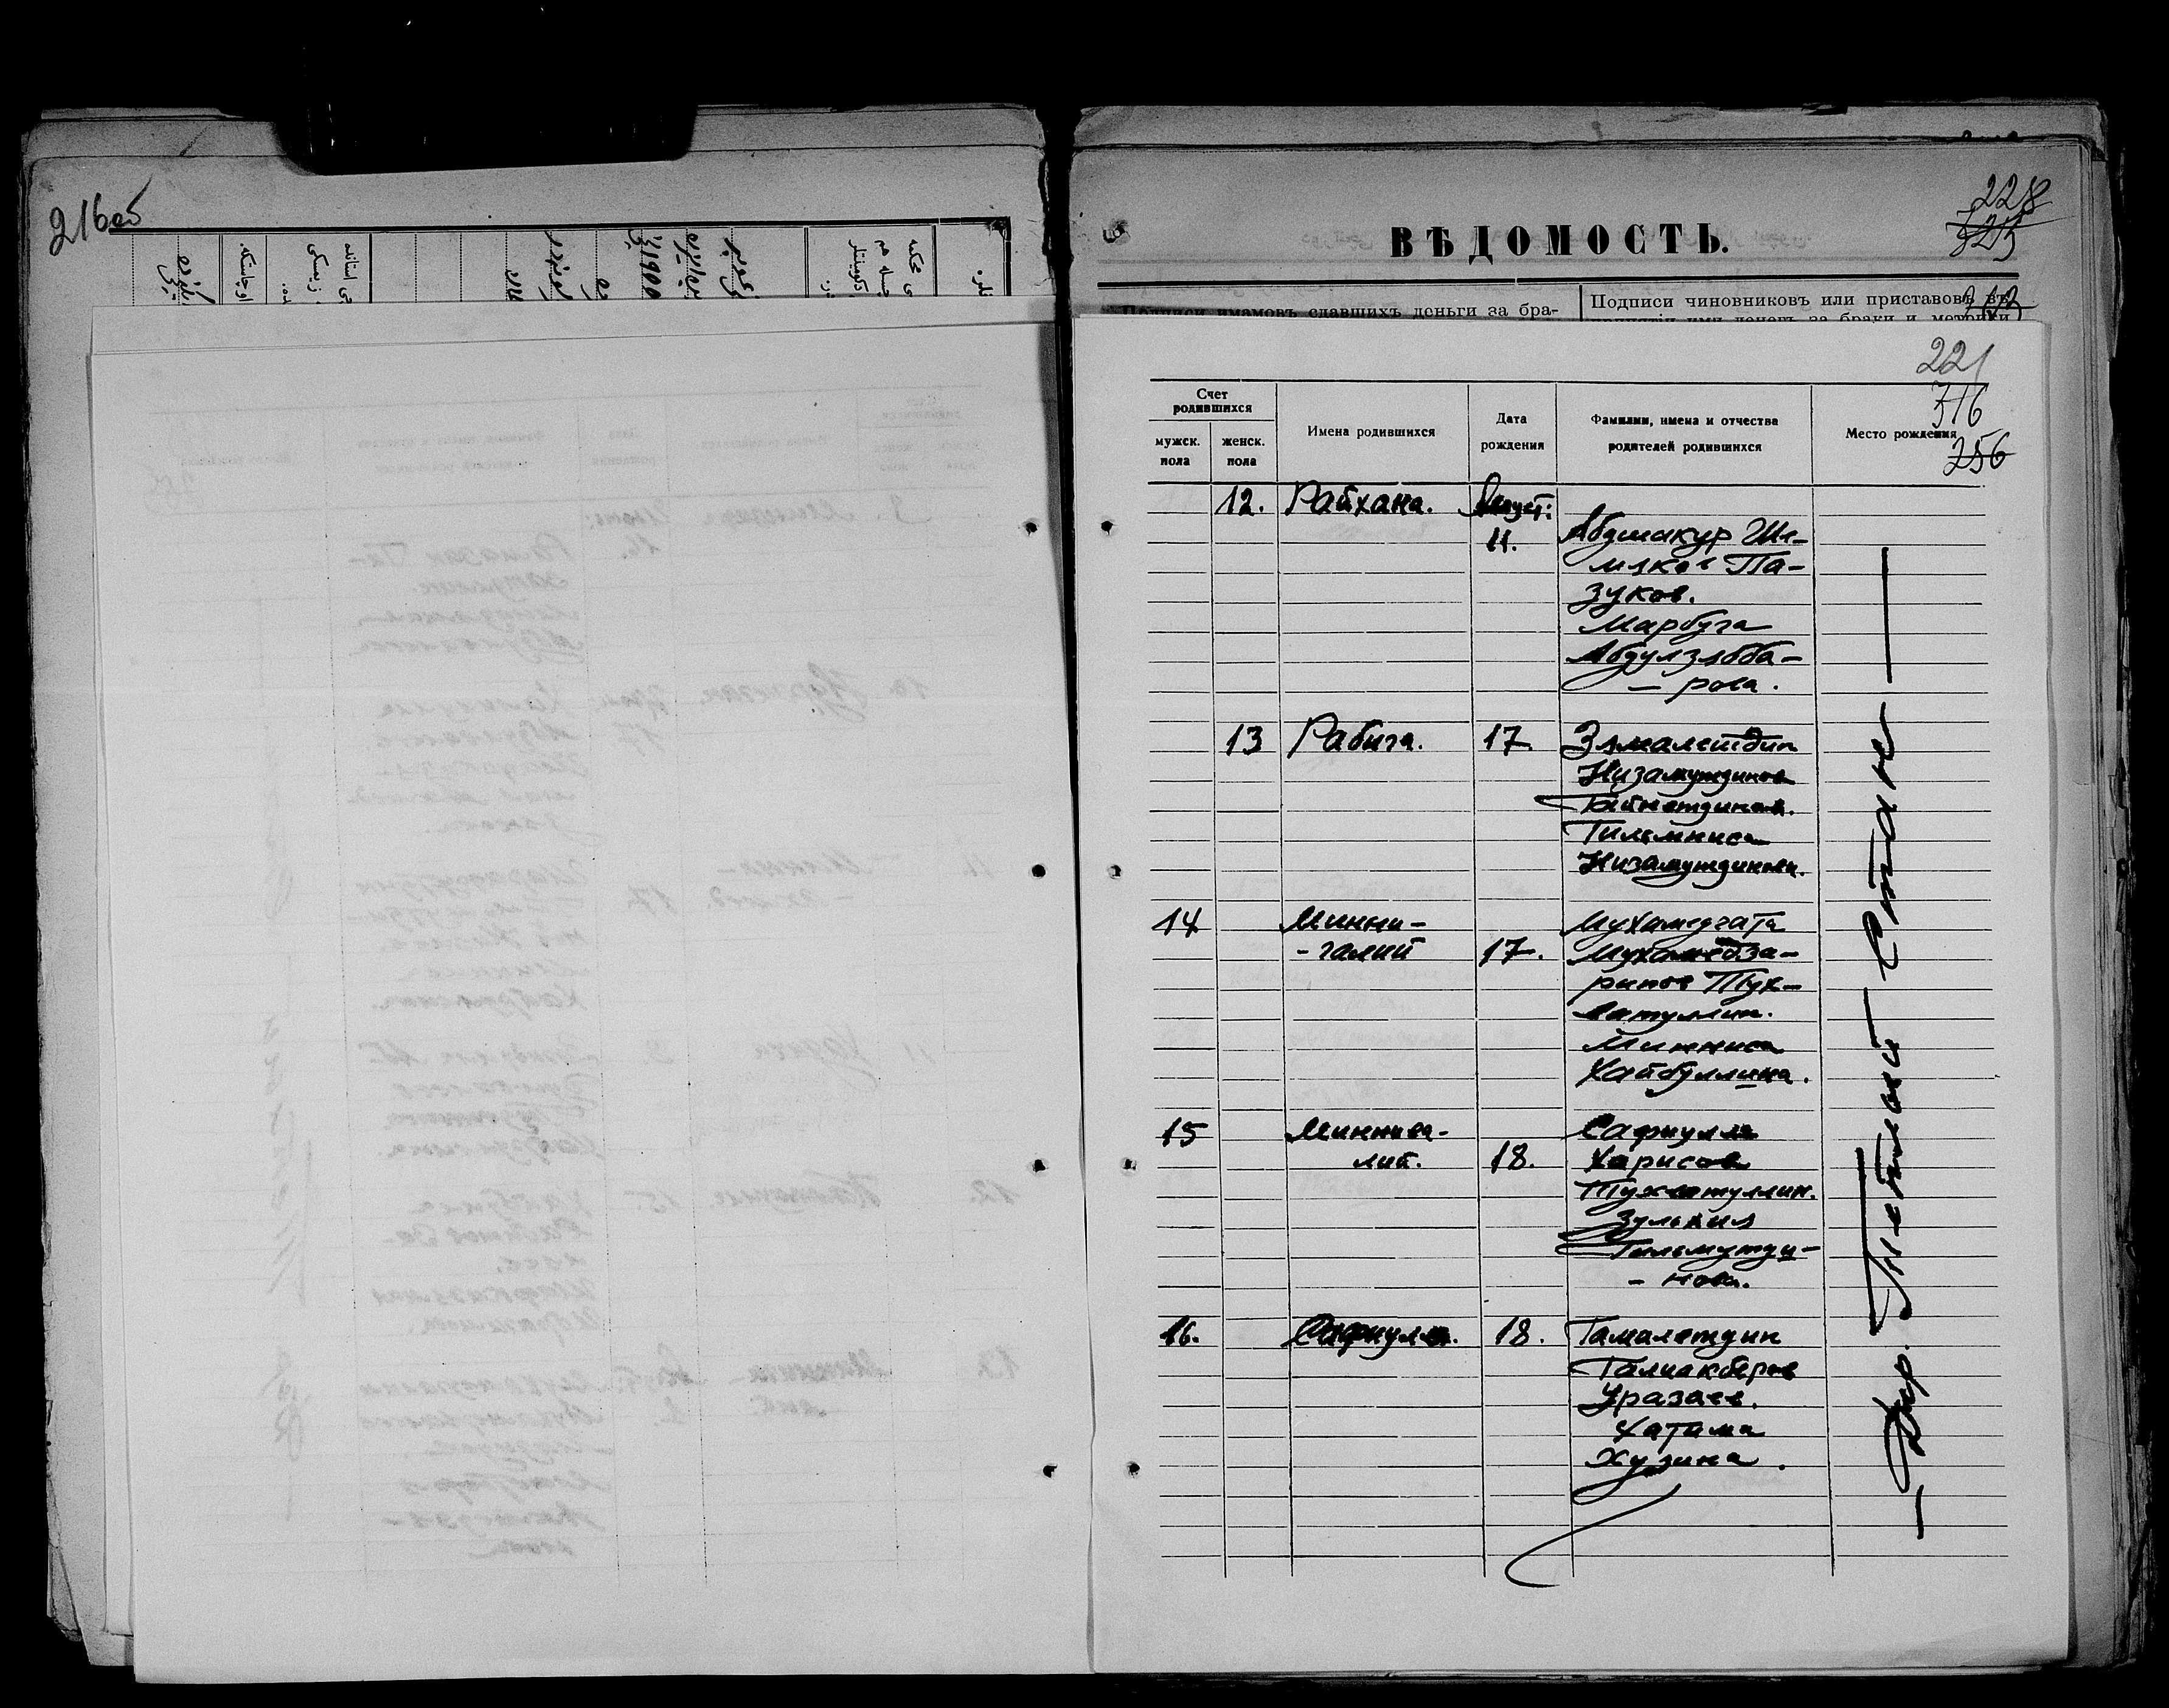 216об
ВѢДОМОСТЬ.
228
Подписи имамовъ сдавшихъ деньги за бра-
Подписи чиновниковъ или приставовъ въ
принятіи ими денегъ за браки и метрики
221
316
256
Счет родившихся
мужск. пола
женск. пола
Имена родившихся
Дата рождения
Фамилии, имена и отчества родителей родившихся
Место рождения
12. Райхана. Август:
11. Абдшакур
Па-
зуков.
Марбуга
Абдулзябба-
- рова.
13 Рабига. 17 Зямалетдин
Низамутдинов
Гайнетдинов.
Гильмниса
Низамутдинова.
14 Минни- Мухамедгата
- галий 17. Мухамедза-
рипов Тух-
ватуллин.
Минниса
Хайбуллина.
15 Миннива- Сафиулла
лий. 18. Харисов
Тухватуллин.
Зулькия
Гильмутди-
- нова.
16. Сафиулла. 18. Гамалетдин
Галиакберов
Уразаев.
Хатима
Хузина.
— Дер. Теплый Стан —